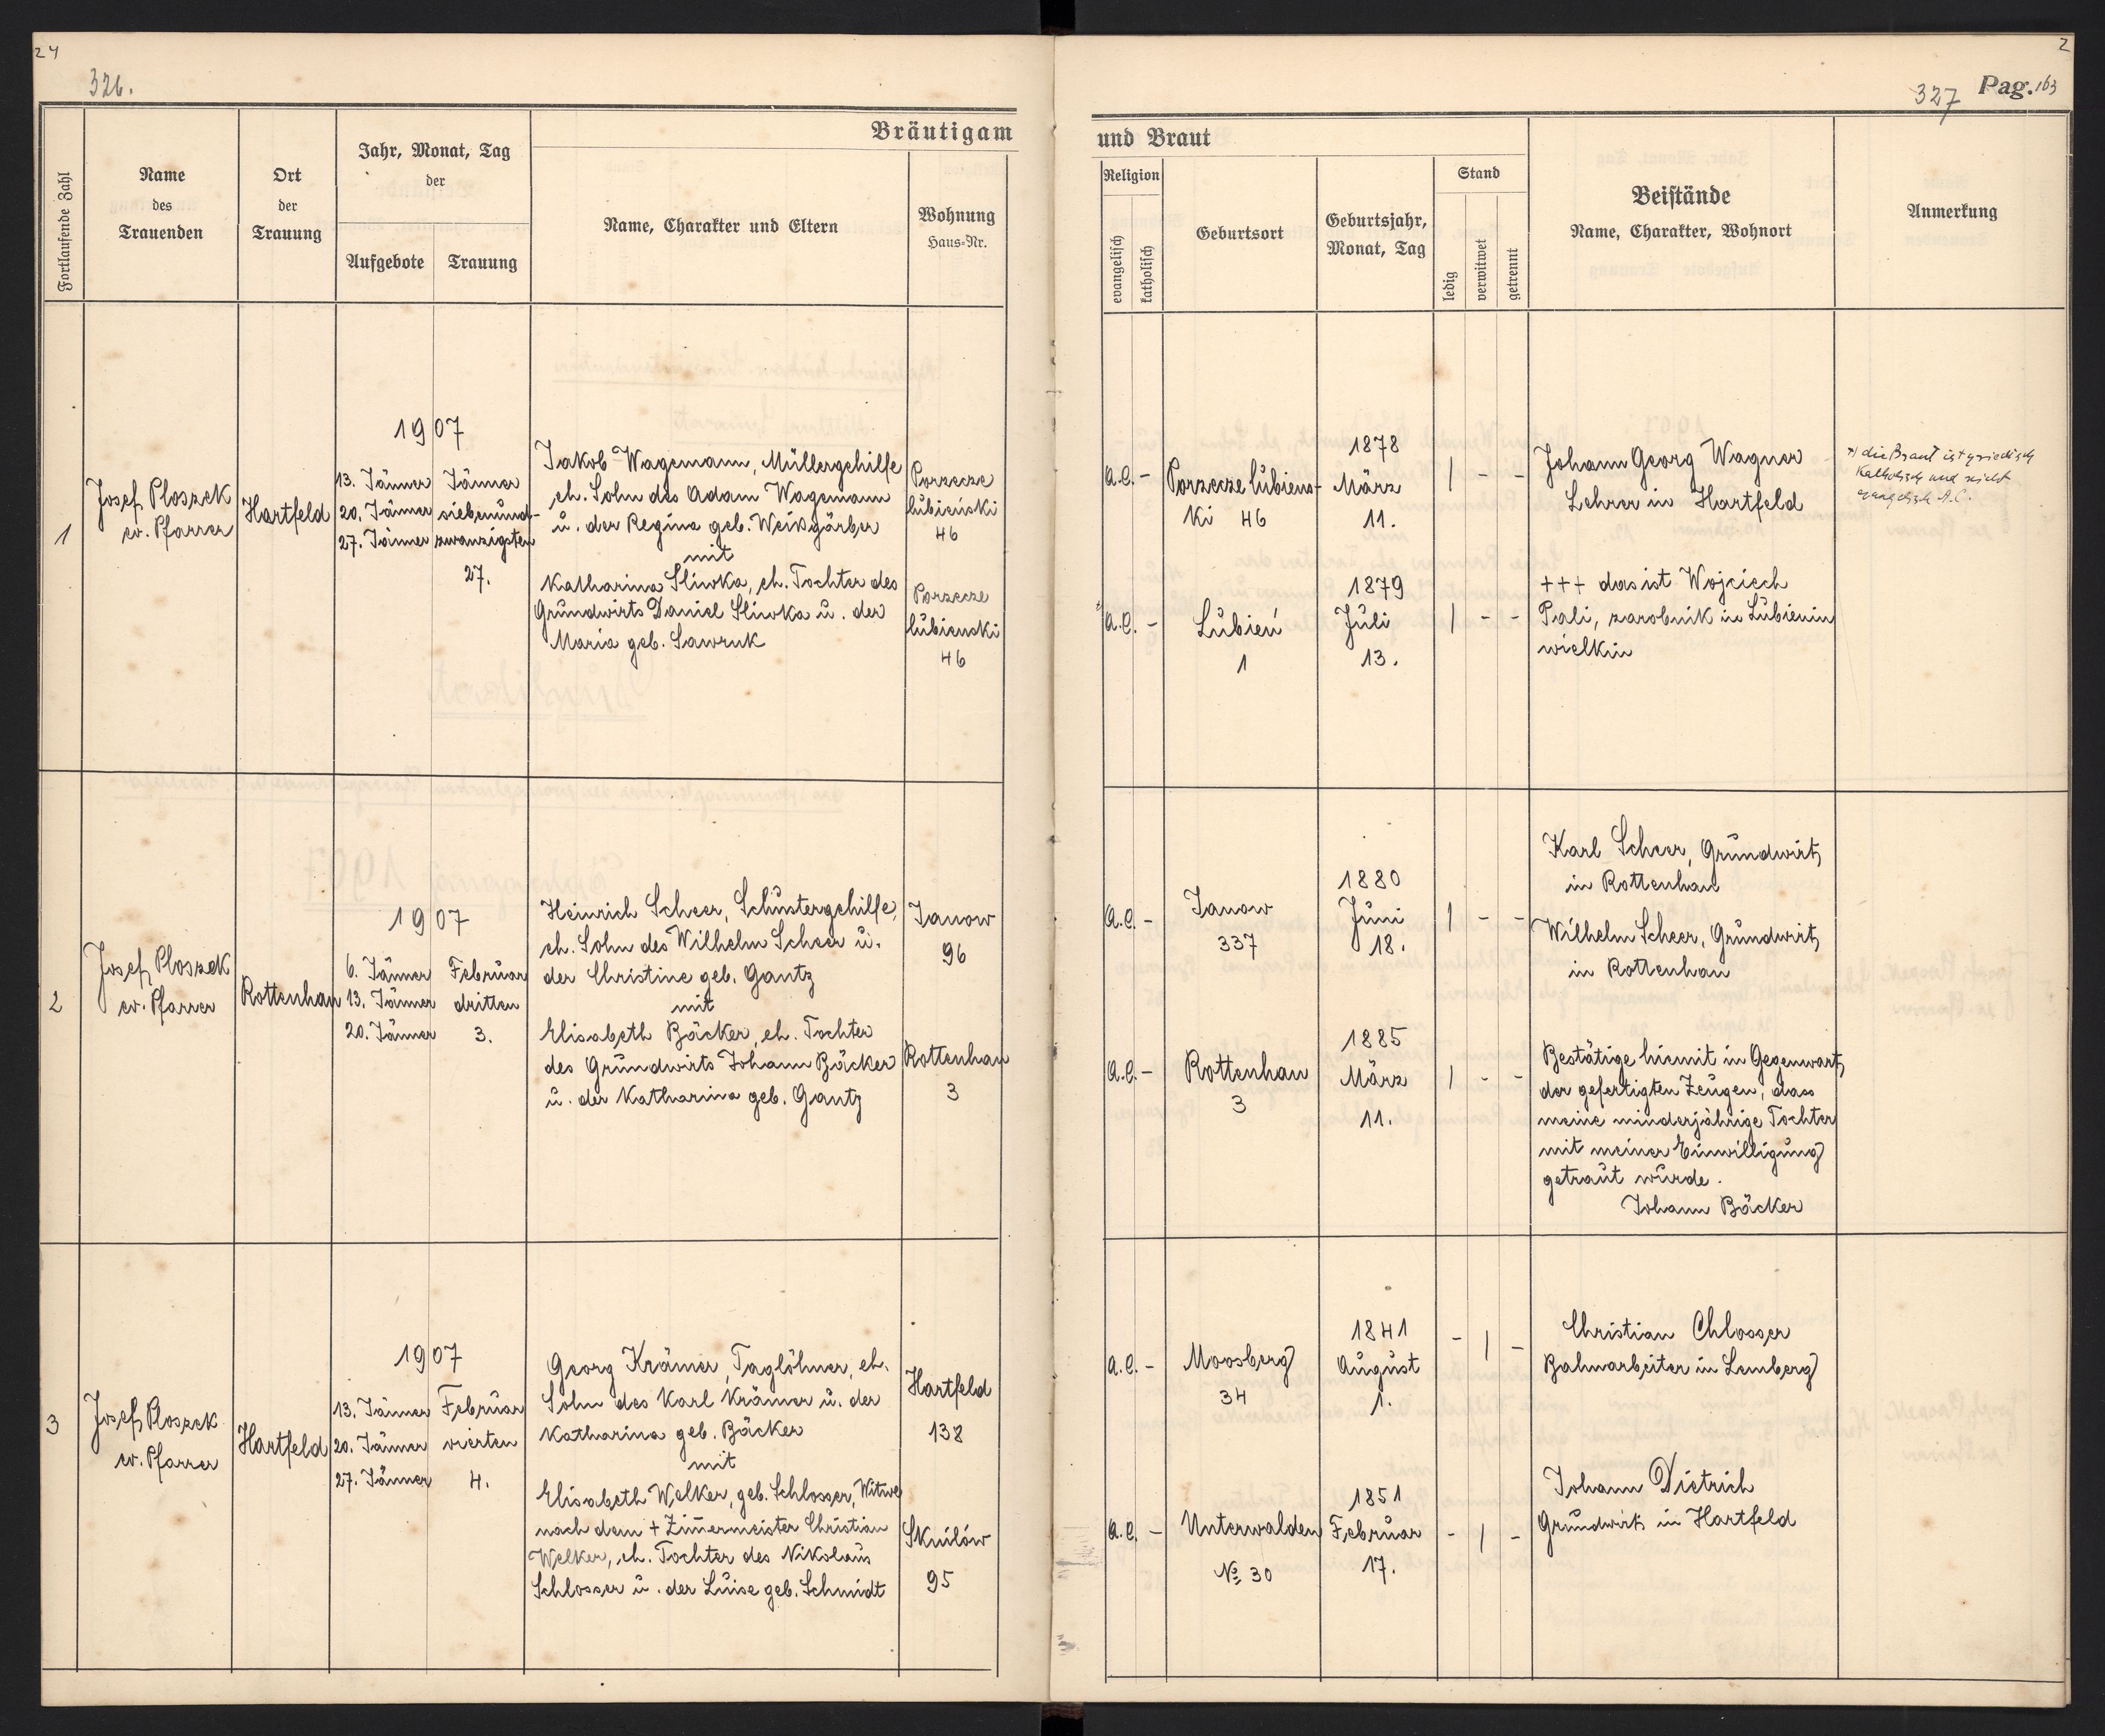 24
326.
2
327 Pag. 163
Bräutigam
und Braut
Fortlaufende Zahl
Name
des
Trauenden
Ort
der
Trauung
Jahr, Monat, Tag
der
Aufgebote
Trauung
Name, Charakter und Eltern
Wohnung
Haus=Nr.
Religion
evangelisch
katholisch
Geburtsort
Geburtsjahr,
Monat, Tag
Stand
ledig
verwitwet
getrennt
Beistände
Name, Charakter, Wohnort
Anmerkung
1
Josef Ploszek
ev. Pfarrer
Hartfeld
1907
13. Jänner
20. Jänner
27. Jänner
Jänner
siebenund-
zwanzigsten
27.
Jakob Wagemann, Müllergehilfe
eh. Sohn des Adam Wagemann
u. der Regina geb. Weikgärber
mit
Katharina Sliwka, eh. Tochter des
Grundwirts Daniel Sliwka u. der
Maria geb. Sawruk
Porzecze
lubieński
46
Porzecze
lubienski
46
A.C. -
Porzecze lubiens-
ki 46
1878
März
11.
| - -
Johann Georg Wagner
Lehrer in Hartfeld
*) die Braut ist griechisch
katholisch und nicht
evangelisch A.C.
* A.C. -
Lubień
1
1879
Juli
13.
| - -
+++ das ist Wojciech
Pali, zarobnik in Lubienin
wielkin
2
Josef Ploszek
ev. Pfarrer
Rottenhan
1907
6. Jänner
13. Jänner
20. Jänner
Februar
dritten
3.
Heinrich Scheer, Schustergehilfe,
eh. Sohn des Wilhelm Scheer u.
der Christine geb. Gantz
mit
Elisabeth Bäcker, eh. Tochter
des Grundwirts Johann Bäcker
u. der Katharina geb. Gantz
Janow
96
Rottenhan
3
A.C. -
Janow
337
1880
Juni
18.
| - -
Karl Scheer, Grundwirt
in Rottenhan
Wilhelm Scheer, Grundwirt
in Rottenhan
A.C. -
Rottenhan
3
1885
März
11.
| - -
Bestätige hiemit in Gegenwart
der gefertigten Zeugen, dass
meine minderjährige Tochter
mit meiner Einwilligung
getraut wurde.
Johann Bäcker
3
Josef Ploszek
ev. Pfarrer
Hartfeld
1907
13. Jänner
20. Jänner
27. Jänner
Februar
vierten
4.
Georg Krämer, Taglöhner, eh.
Sohn des Karl Krämer u. der
Katharina geb. Bäcker
mit
Elisabeth Welker, geb. Schlosser, Witwe
nach dem + Zim̄ermeister Christian
Welker, eh. Tochter des Nikolaus
Schlosser u. der Luise geb. Schmidt
Hartfeld
138
Sknilów
95
A.C. -
Moosberg
34
1841
August
1.
- | -
Christian Chlosser
Bahnarbeiter in Lemberg
A.C. -
Unterwalden
№ 30
1851
Februar
17.
- | -
Johann Dietrich
Grundwirt in Hartfeld